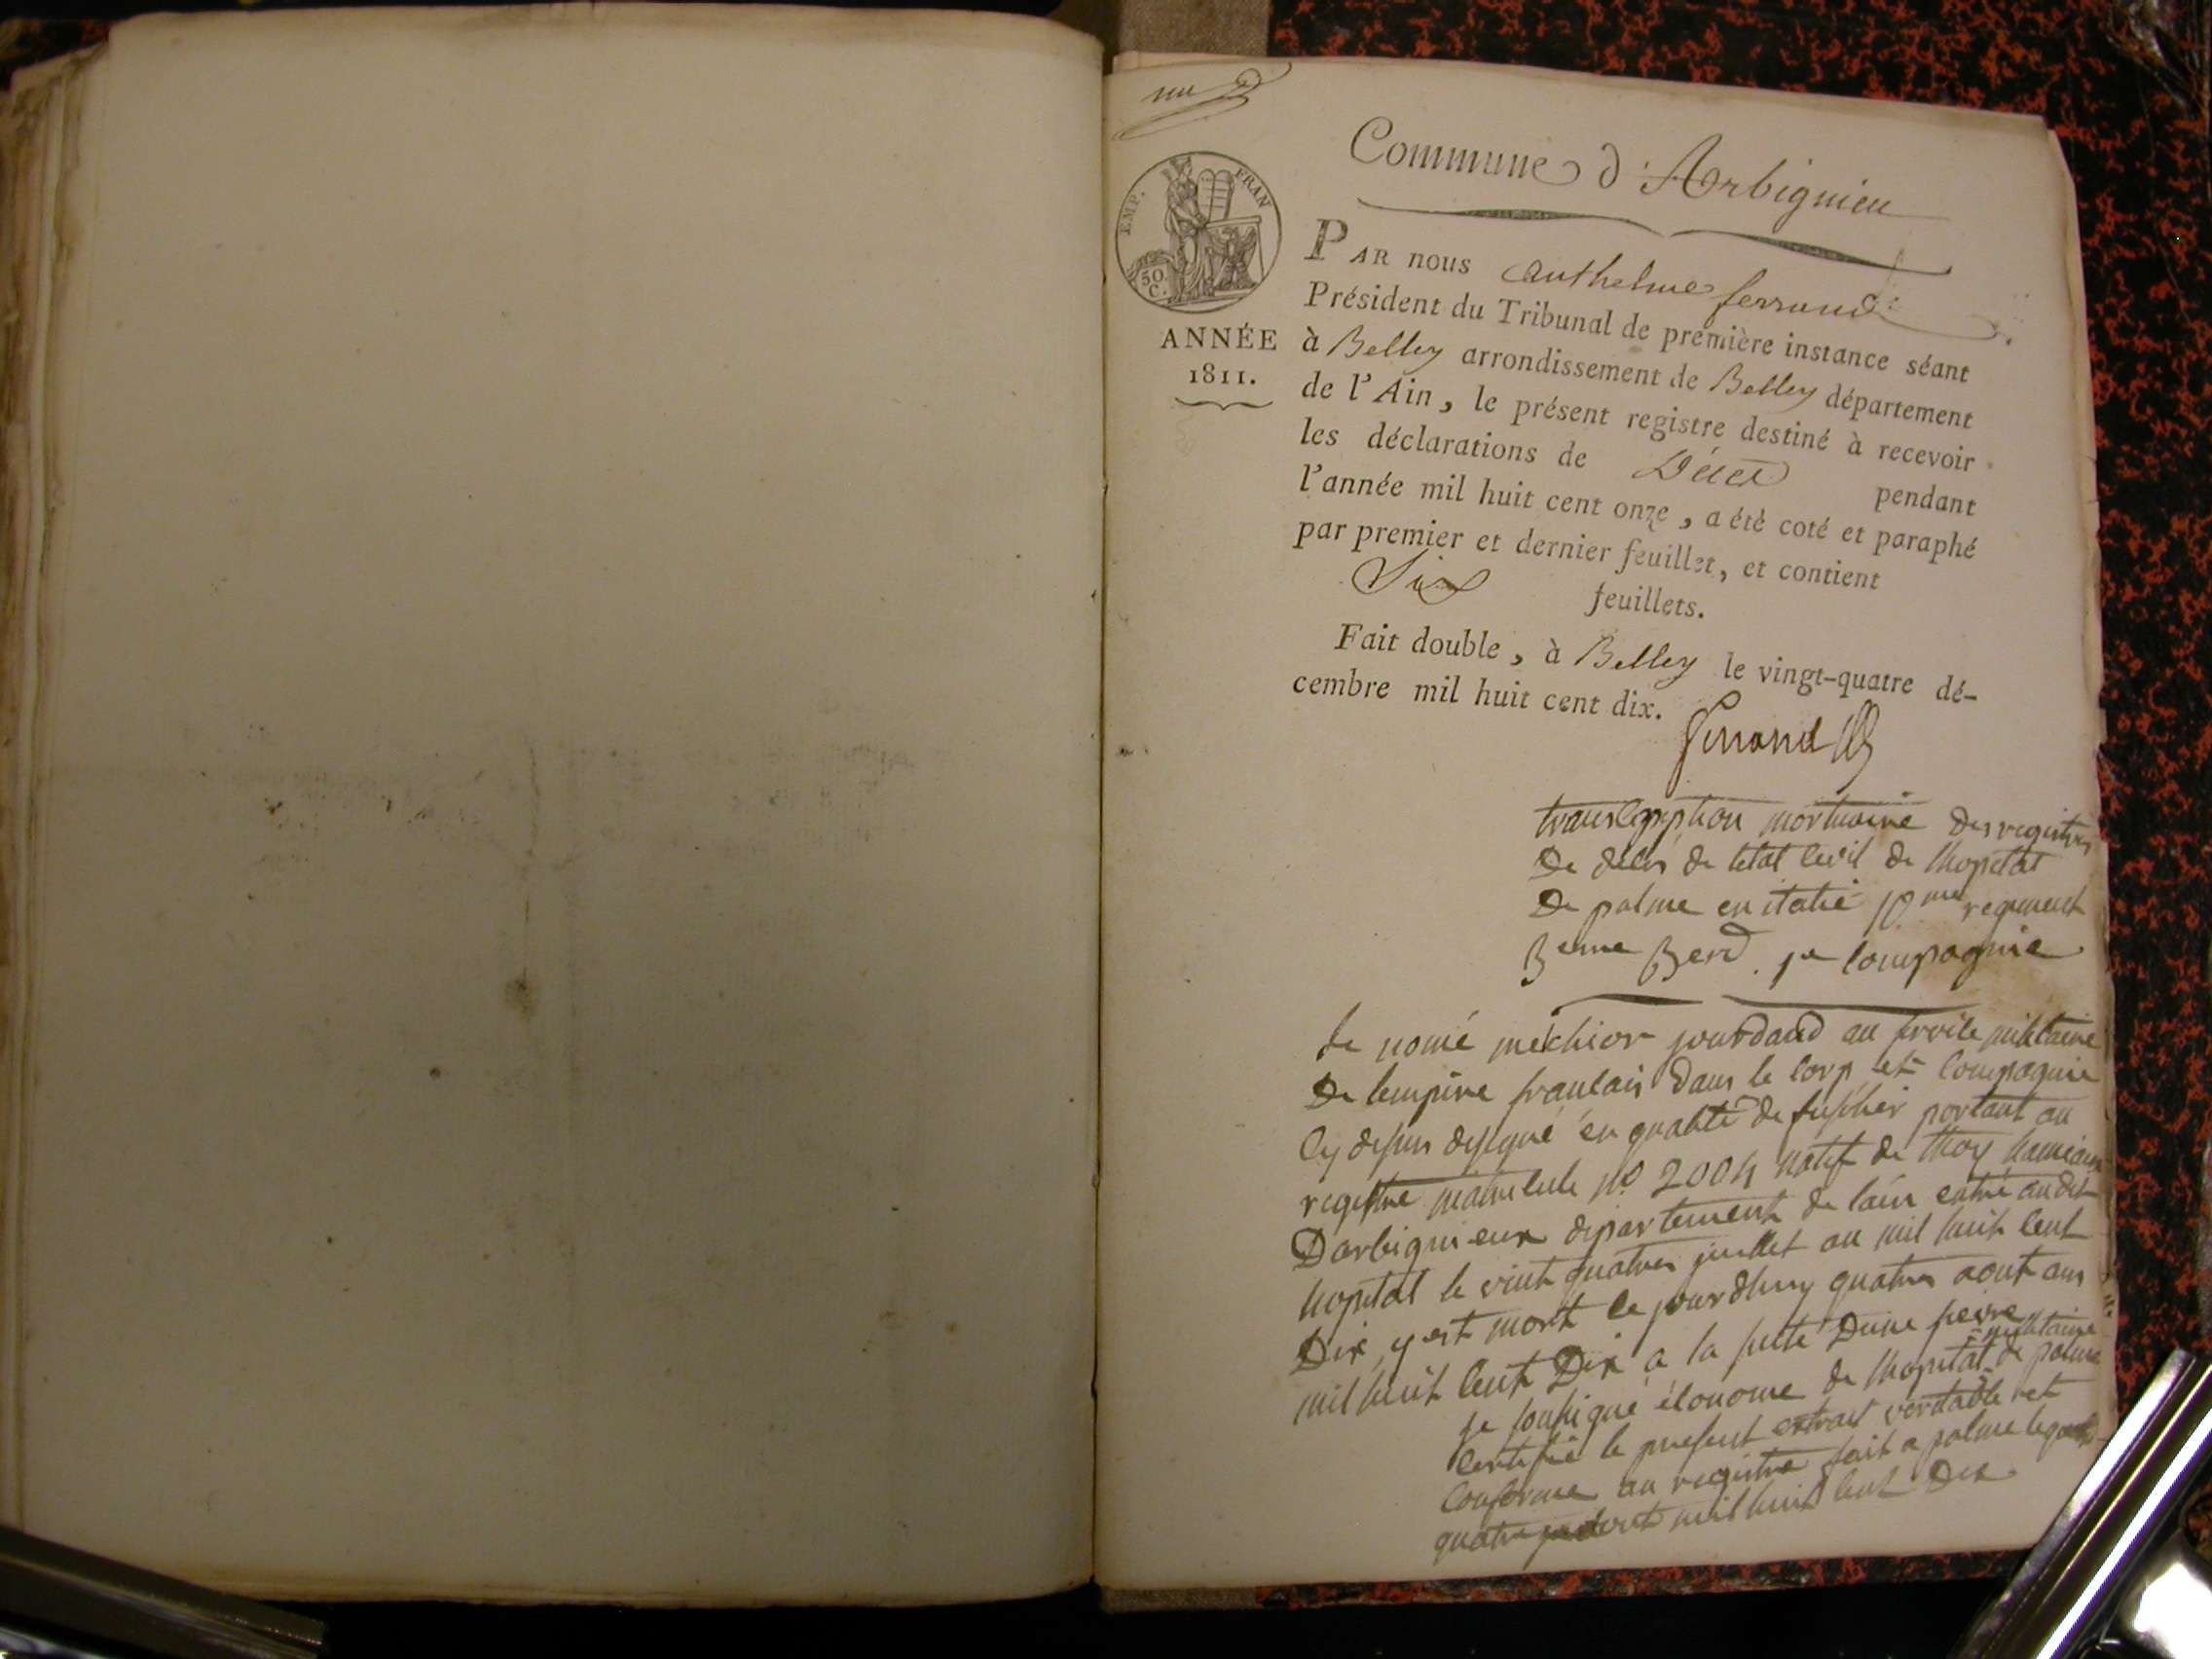 un
Commune d'Arbignieu
EMP. FRAN
50 C.
ANNÉE
1811.
PAR nous anthelme ferrand
Président du Tribunal de première instance séant
à Belley arrondissement de Belley département
de l'Ain, le présent registre destiné à recevoir
les déclarations de Décès pendant
l'année mil huit cent onze, a été coté et paraphé
par premier et dernier feuillet, et contient
Six feuillets.
Fait double, à Belley le vingt-quatre dé-
cembre mil huit cent dix.
ferrand
transcription mortuaire Des registres
De décès de letat civil de lhopital
De palme en italie 10me regiment
3eme 1e compagnie
le nomé melchior jourdand au service militaire
De lempire francais Dans le corp et compagnie
cy dessus designé en qualité de fusilier portant au
registre matricule no 2004 natif de thoy hameau
Darbignieux departement de lain entré audit
hopital le vint quatres juillet an mil huit cent
Dix y est mort ce jourdhuy quatres aout an
mil huit cent Dix a la suite Dune fievre
je soussigné économe de lhopital militaire de palme
certifie le present extrait veritable et
conforme au registre fait a palme le
quatre mil huit cent Dix